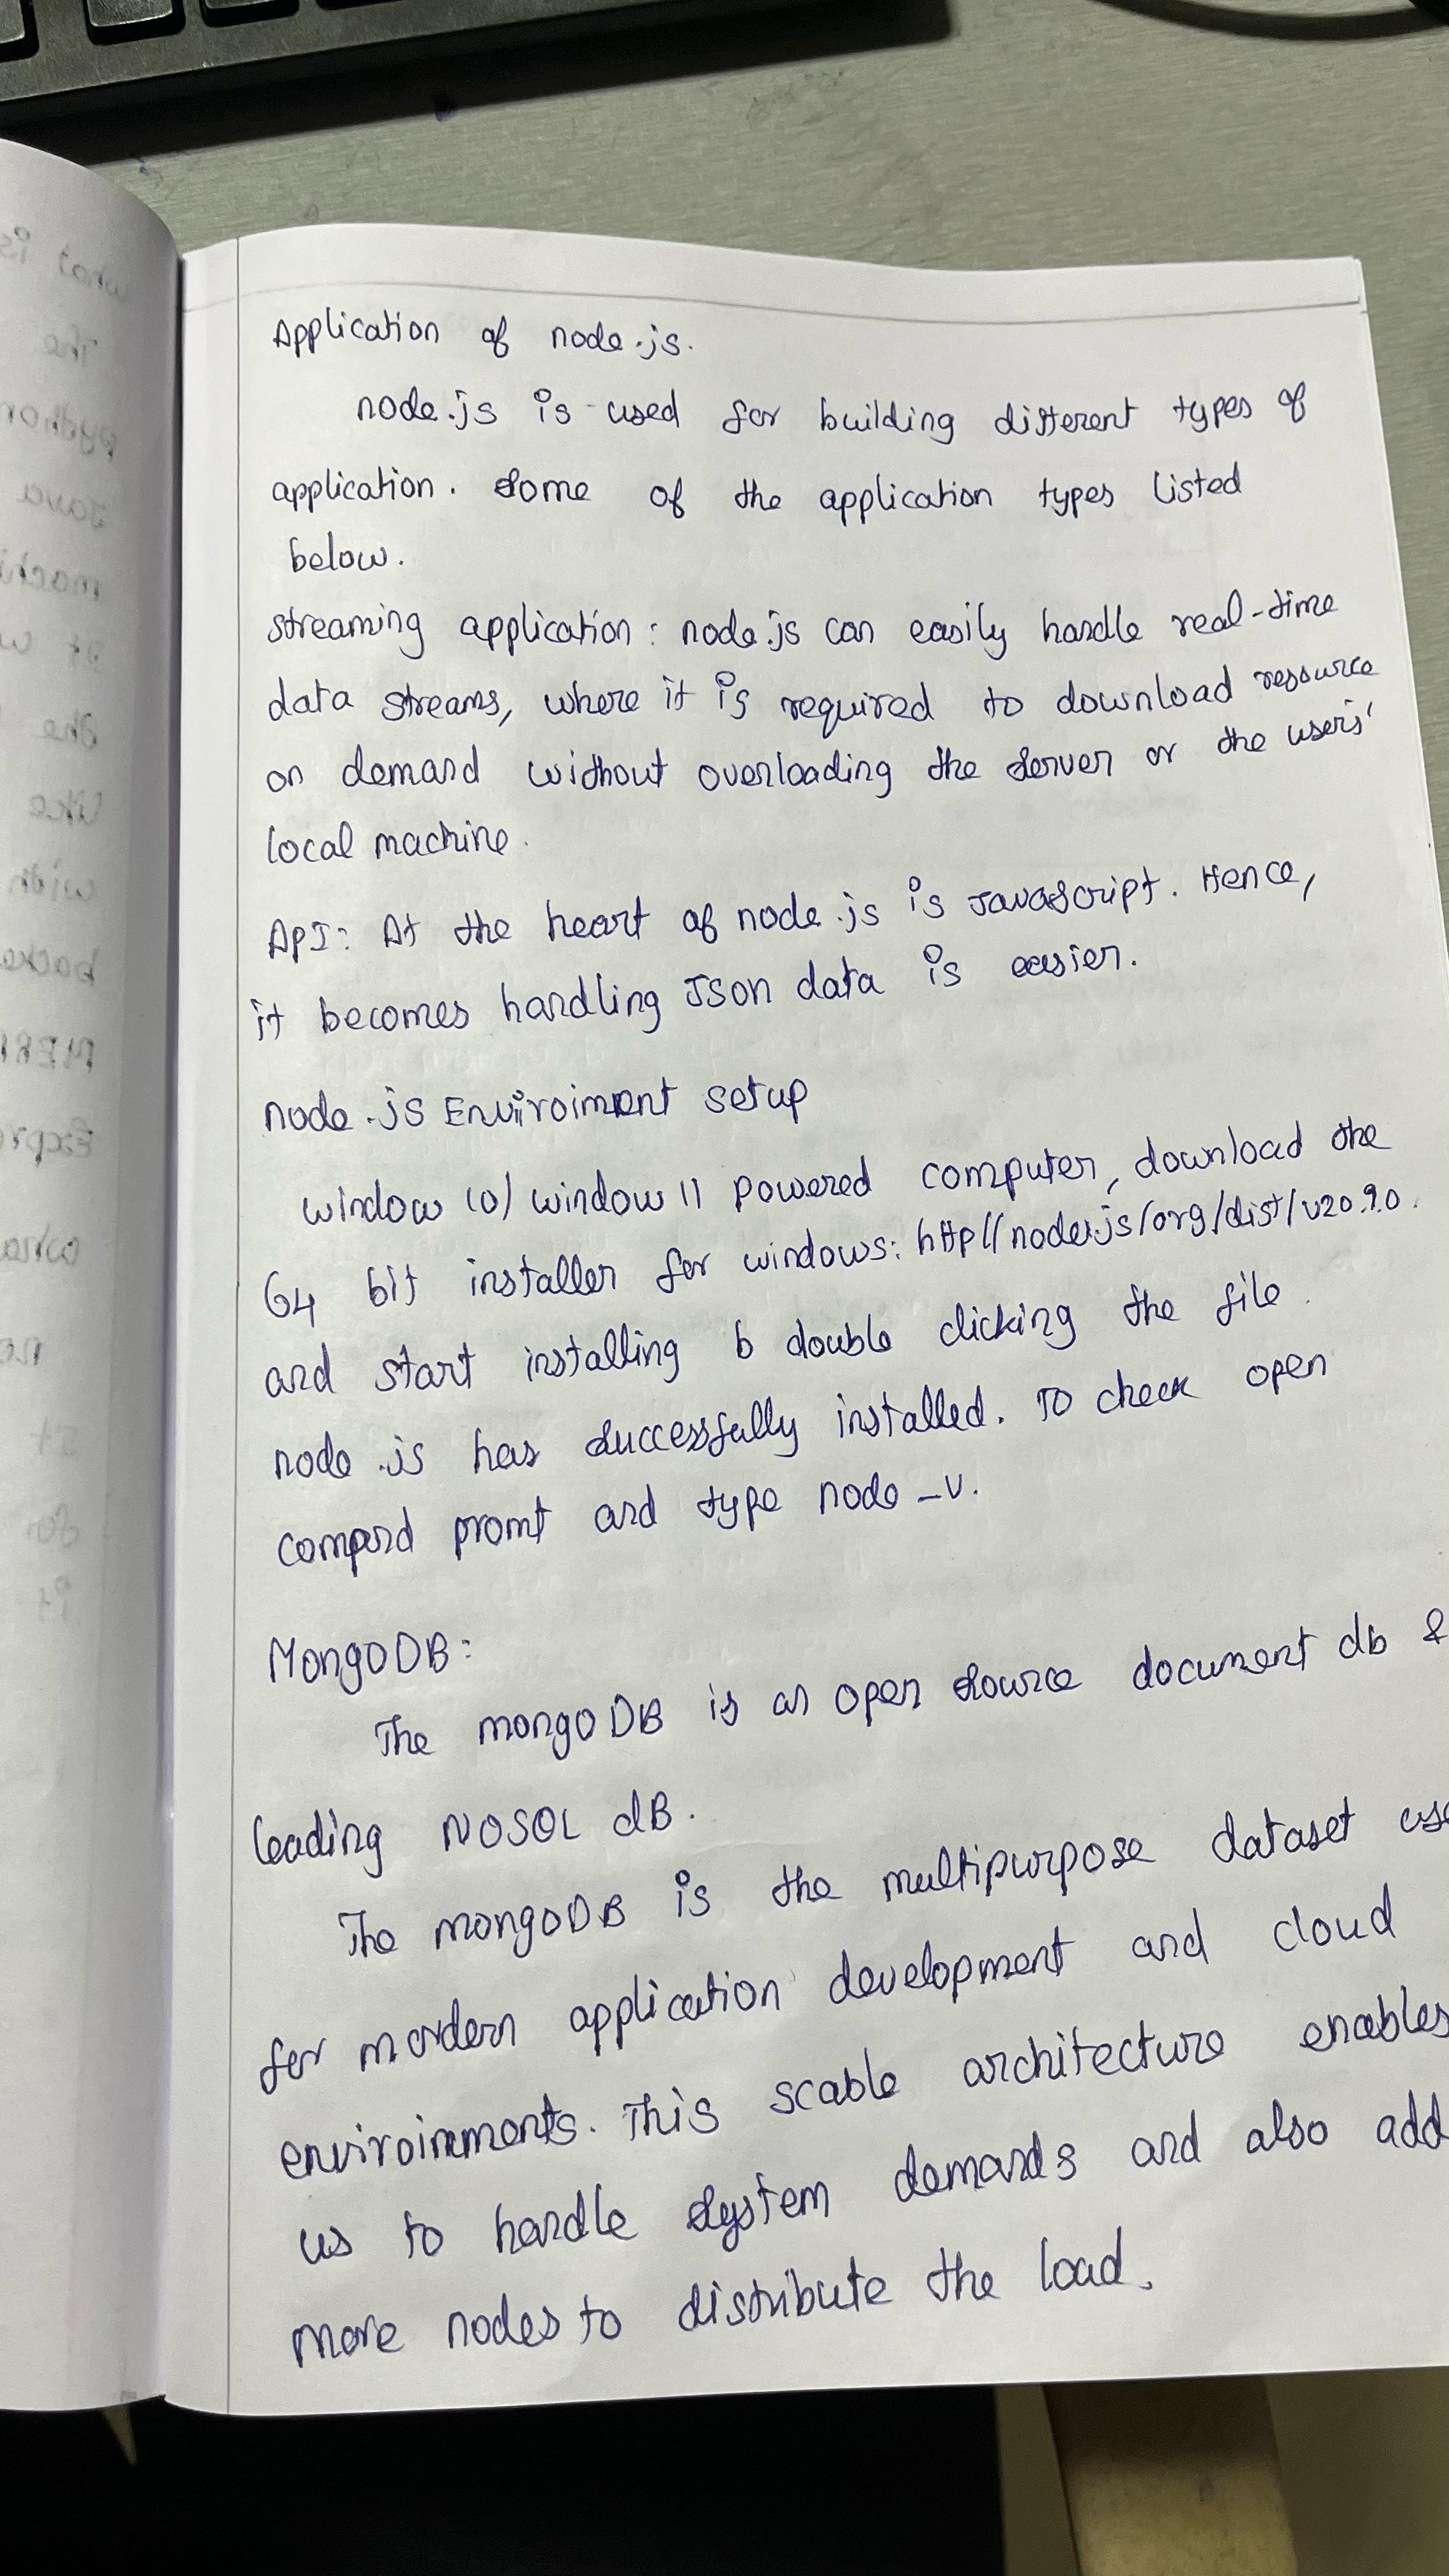 Application of node.js.
node.js is used for building different types of
application. Some of the application types listed
below.
streaming application: node.js can easily handle real-time
data streams, where it is required to download resource
on demand without overloading the server or the users'
local machine.
API: At the heart of node.js is Javascript. Hence,
it becomes handling Json data is easier.
node.js Enviroiment setup
window 10/ window 11 powered computer, download the
64 bit installer for windows: http//node.js/org/dist/v20.9.0.
and start installing b double clicking the file.
node.js has successfully installed. To check open
compand promt and type node -v.
MongoDB:
The mongoDB is an open source document db &
leading NOSQL dB.
The mongoDB is the multipurpose dataset use
for mordern application development and cloud
enviroinments. This scable architecture enables
us to handle system demands and also add
more nodes to distribute the load.